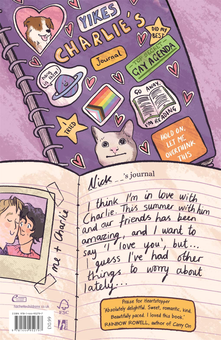 YIKES
CHARLIE'S
Journal
DID MY
BEST
GAY AGENDA
GO AWAY
I'M READING
TIRED
HOLD ON,
LET ME
OVERTHINK
THIS
Nick__'s journal
I think I'm in love with
Charlie. This summer with him
and our friends has been
amazing, and I want to
say 'I love you', but...
I guess I've had other
things to worry about
lately...
me + Charlie
Praise for Heartstopper
'Absolutely delightful. Sweet, romantic, kind.
Beautifully paced. I loved this book.'
RAINBOW ROWELL, author of Carry On
FSC